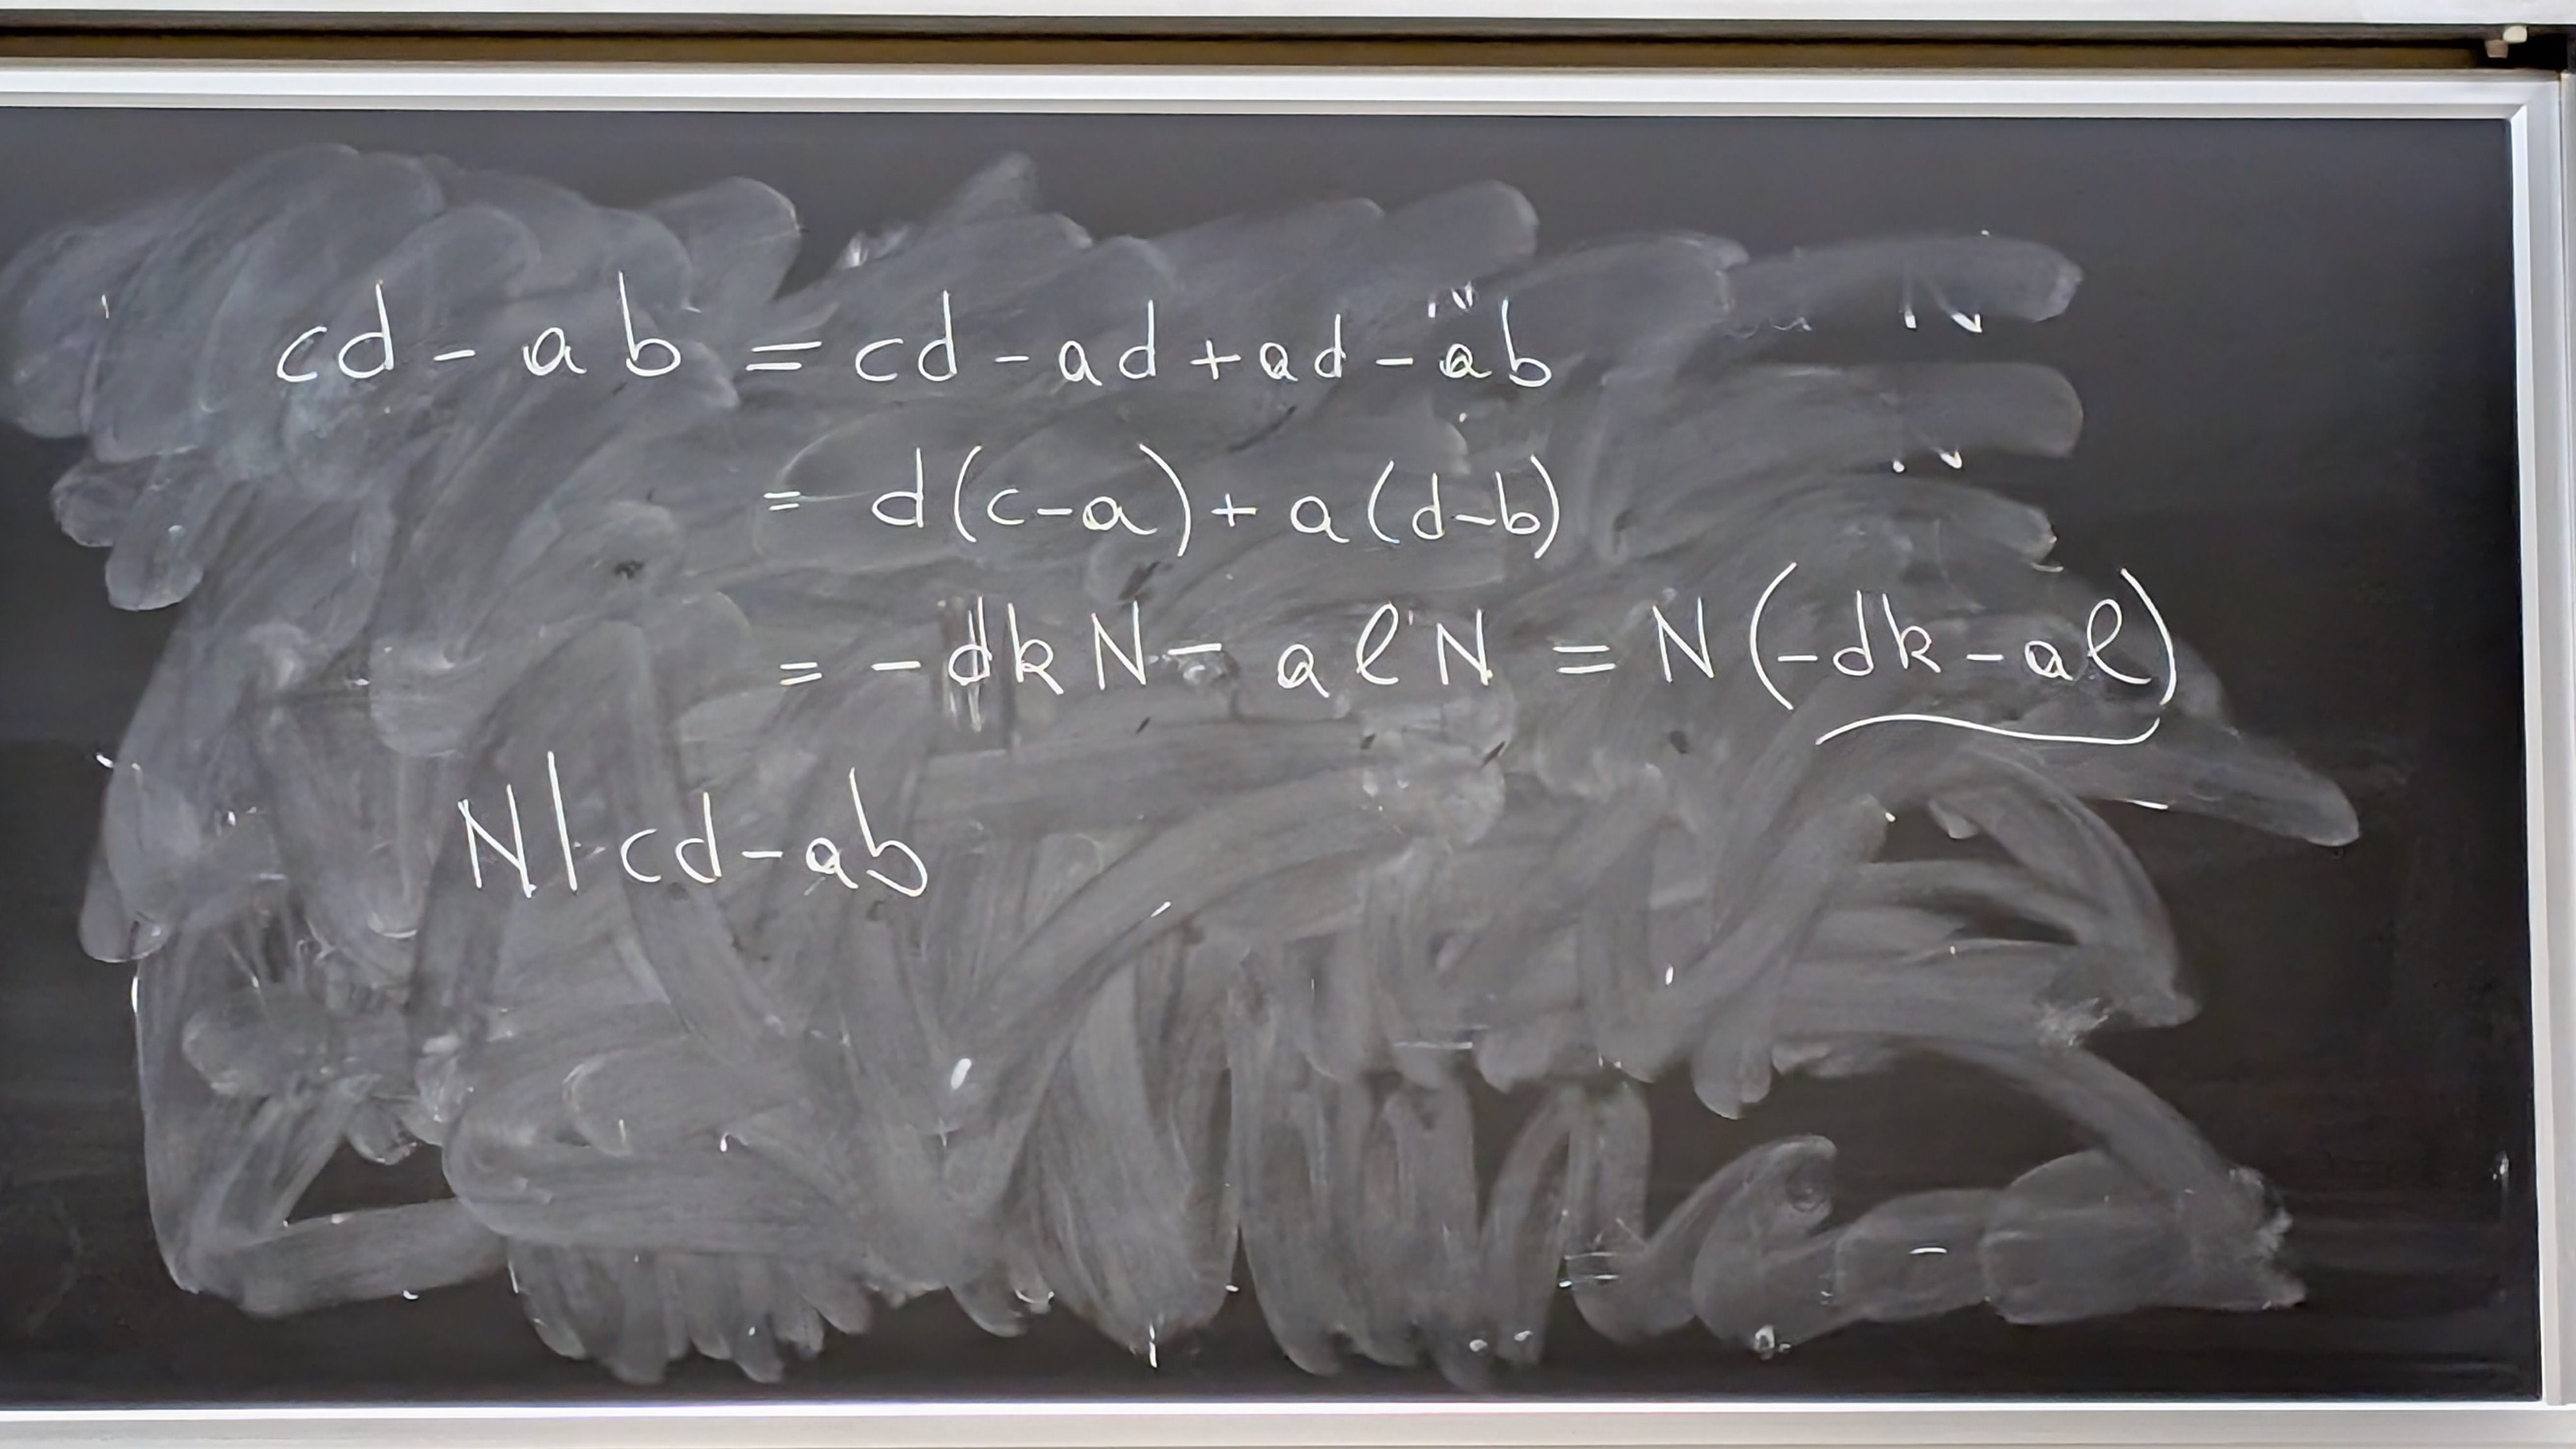 cd - ab = cd - ad + ad - ab
= d(c-a) + a(d-b)
= -dkN - alN = N(-dk - al)
N | cd - ab